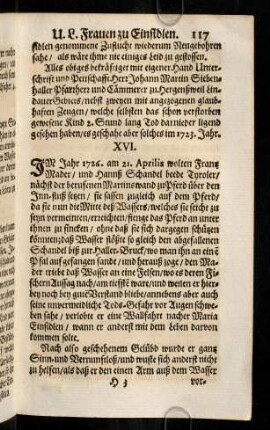 U. L. Frauen zu Einsidlen. 117
sidlen genommene Zuflucht wiederum Neugebohren
sahe / als wäre ihme nie einiges Leid zu gestossen.
Alles obiges bekräfftiget mit eigener Hand Unter-
schrifft und Pettschafft. Herr Johann Martin Sieben-
haller Pfarrherr und Cammerer zu Hergensweil Lin-
dauer Gebiets / nebst zweyen mit angezogenen glaub-
hafften Zeugen / welche selbsten das schon verstorben
gewesene Kind 2. Stund lang Tod darnieder ligend
gesehen haben / es geschahe aber solches im 1723. Jahr.
XVI.
IM Jahr 1726. am 21. Aprilis wolten Frantz
Mader / und Hannß Schandel beede Tyroler /
nächst der berufenen Martinswand zu Pferd über den
Inn-fluß setzen / sie sassen zugleich auf dem Pferd /
da sie nun die Mitte deß Wassers / welches sie seicht zu
seyn vermeinten / erreichten / fienge das Pferd an unter
ihnen zu sincken / ohne daß sie sich dargegen schützen
können; daß Wasser stößte so gleich den abgefallenen
Schandel biß zur Haller-Bruck / wo man ihn an ein
Pfal auf gefangen fande / und herauß zoge / den Ma-
der triebe daß Wasser an eine Felsen / wo es deren Fi-
schern Aussag nach / am tiefste ware / und weilen er hier-
bey noch bey gute Verstand bliebe / annebens aber auch
seine unvermeidliche Tods-Gefahr vor Augen schwe-
ben sahe / verlobte er eine Wallfahrt nacher Maria
Einsidlen / wann er anderst mit dem Leben darvon
kommen solte.
Nach also geschehenem Gelübd wurde er gantz
Sinn-und Vernunfftloß / und wuste sich anderst nicht
zu helfen / als daß er den einen Arm auß dem Wasser
H 3 vor-